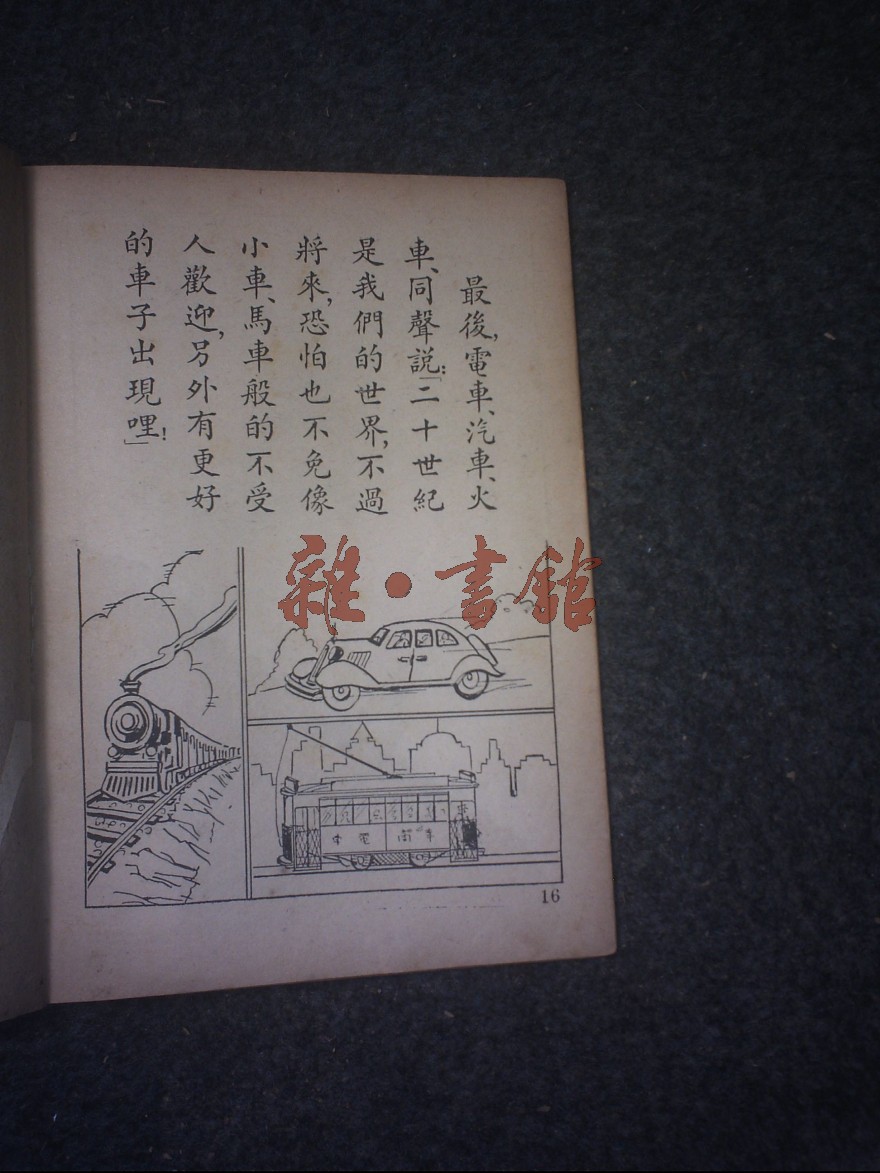 最後，電車、汽車、火
車、同聲説：「二十世紀
是我們的世界，不過
將來，恐怕也不免像
小車、馬車般的不受
人歡迎，另外有更好
的車子出現哩！」
雜·書館
16